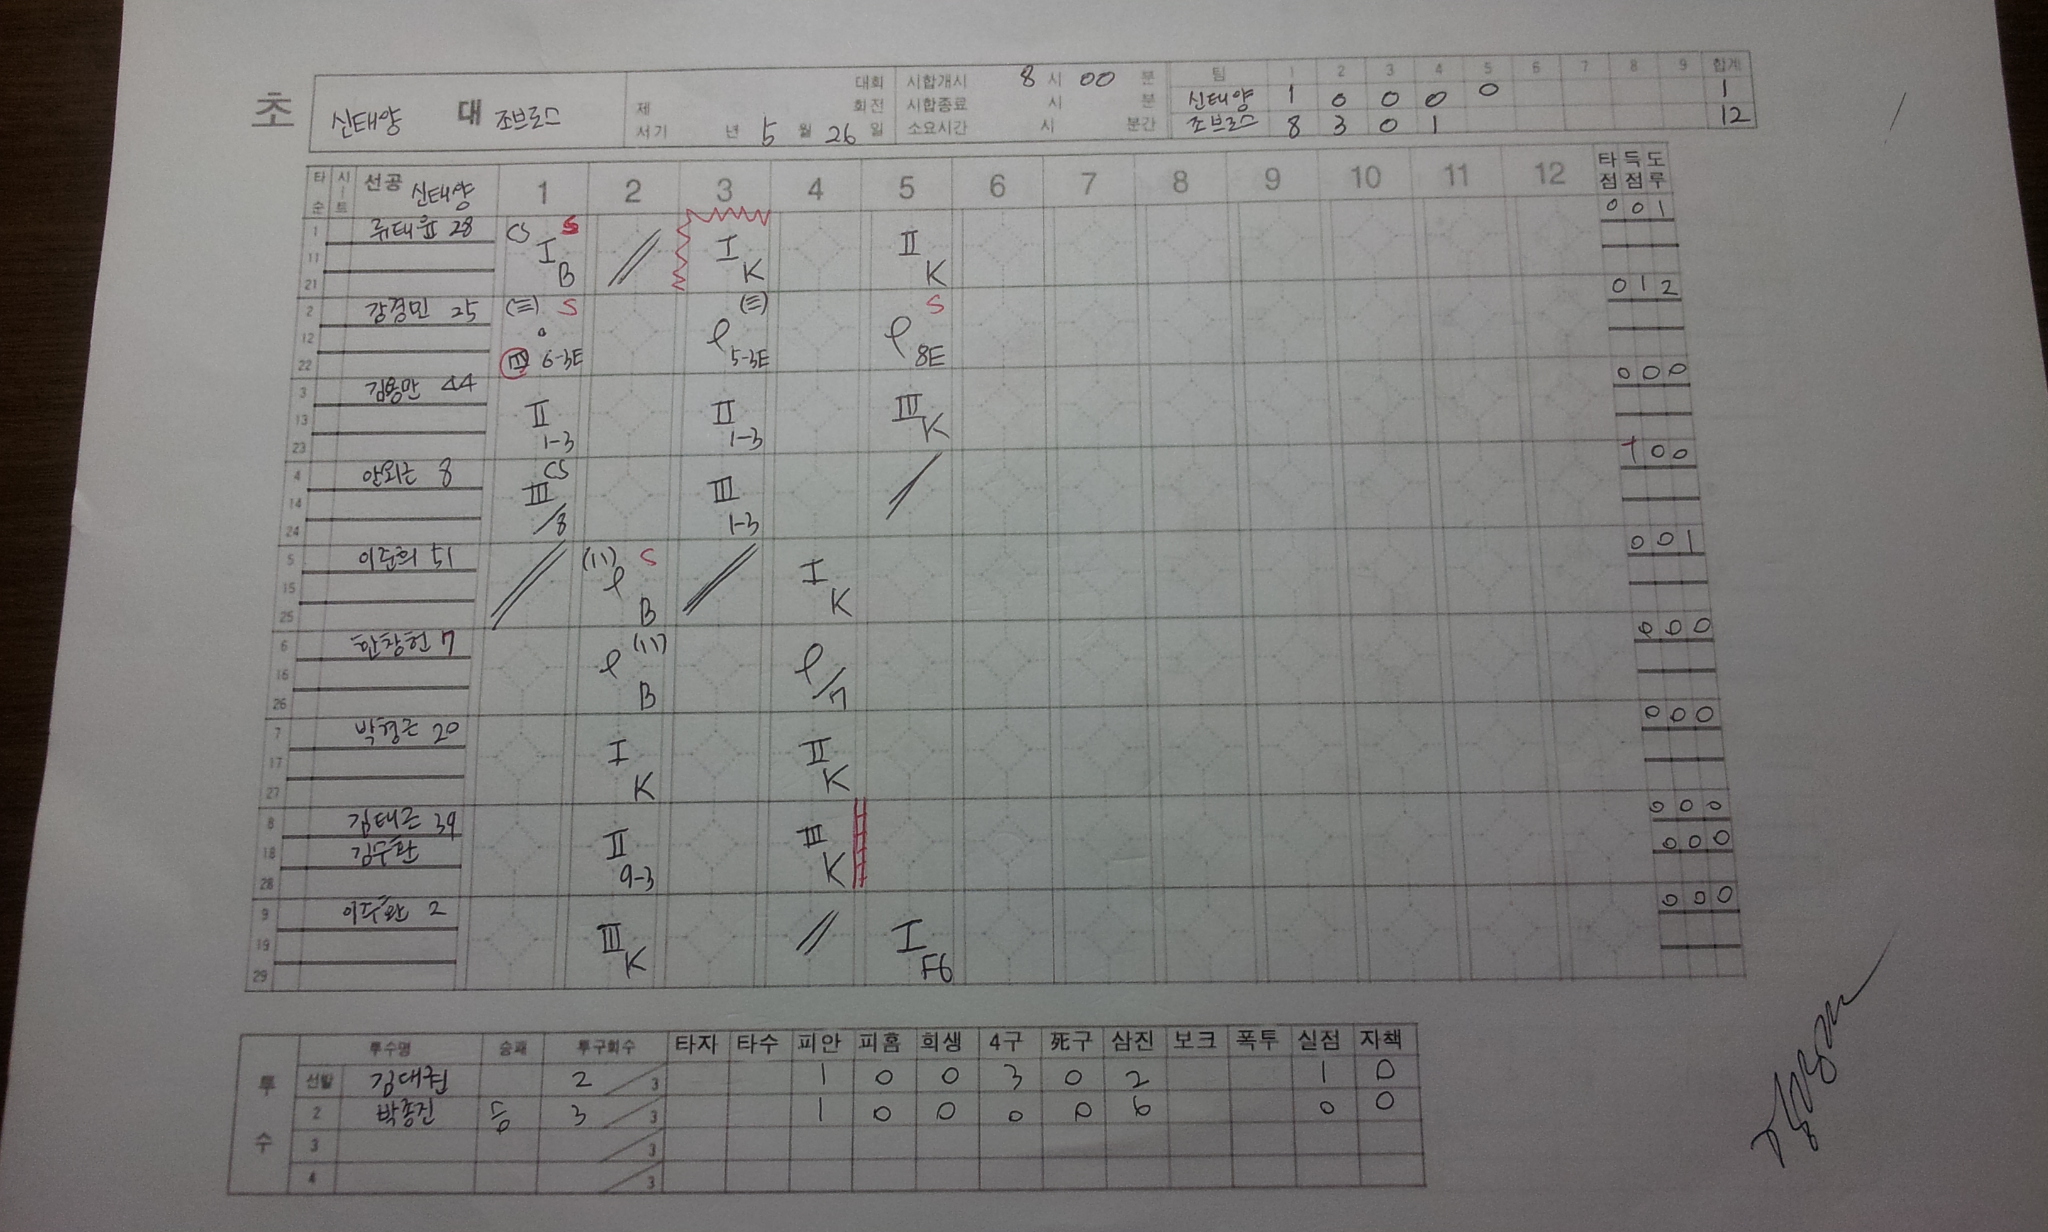 초
신태양 대 조브로스
대회
제 회전
서기 년 5 월 26 일
시합개시 8 시 00 분
시합종료 시 분
소요시간 시 분간
팀 1 2 3 4 5 6 7 8 9 합계
신태양 1 0 0 0 0 1
조브로스 8 3 0 1 12
타순 시트 선공 신태양 1 2 3 4 5 6 7 8 9 10 11 12 타점 득점 도루
1 28 CS S I B I K II K 0 0 1
11
21
2 강경민 25 (三) S 6-3E (三) 5-3E S 8E 0 1 2
12
22
3 김용만 44 II 1-3 II 1-3 III K 0 0 0
13
23
4 안외근 8 CS III /8 III 1-3 1 0 0
14
24
5 이준희 51 (11) S B I K 0 0 1
15
25
6 한창헌 7 (11) B /7 0 0 0
16
26
7 박경근 20 I K II K 0 0 0
17
27
8 김태근 39 II 9-3 III K 0 0 0
18 0 0 0
28
9 2 III K I F6 0 0 0
19
29
투수 투수명 승패 투구회수 타자 타수 피안 피홈 희생 4구 死구 삼진 보크 폭투 실점 자책
선발 김대권 2 /3 1 0 0 3 0 2 1 0
2 박종진 승 3 /3 1 0 0 0 0 6 0 0
3 /3
4 /3